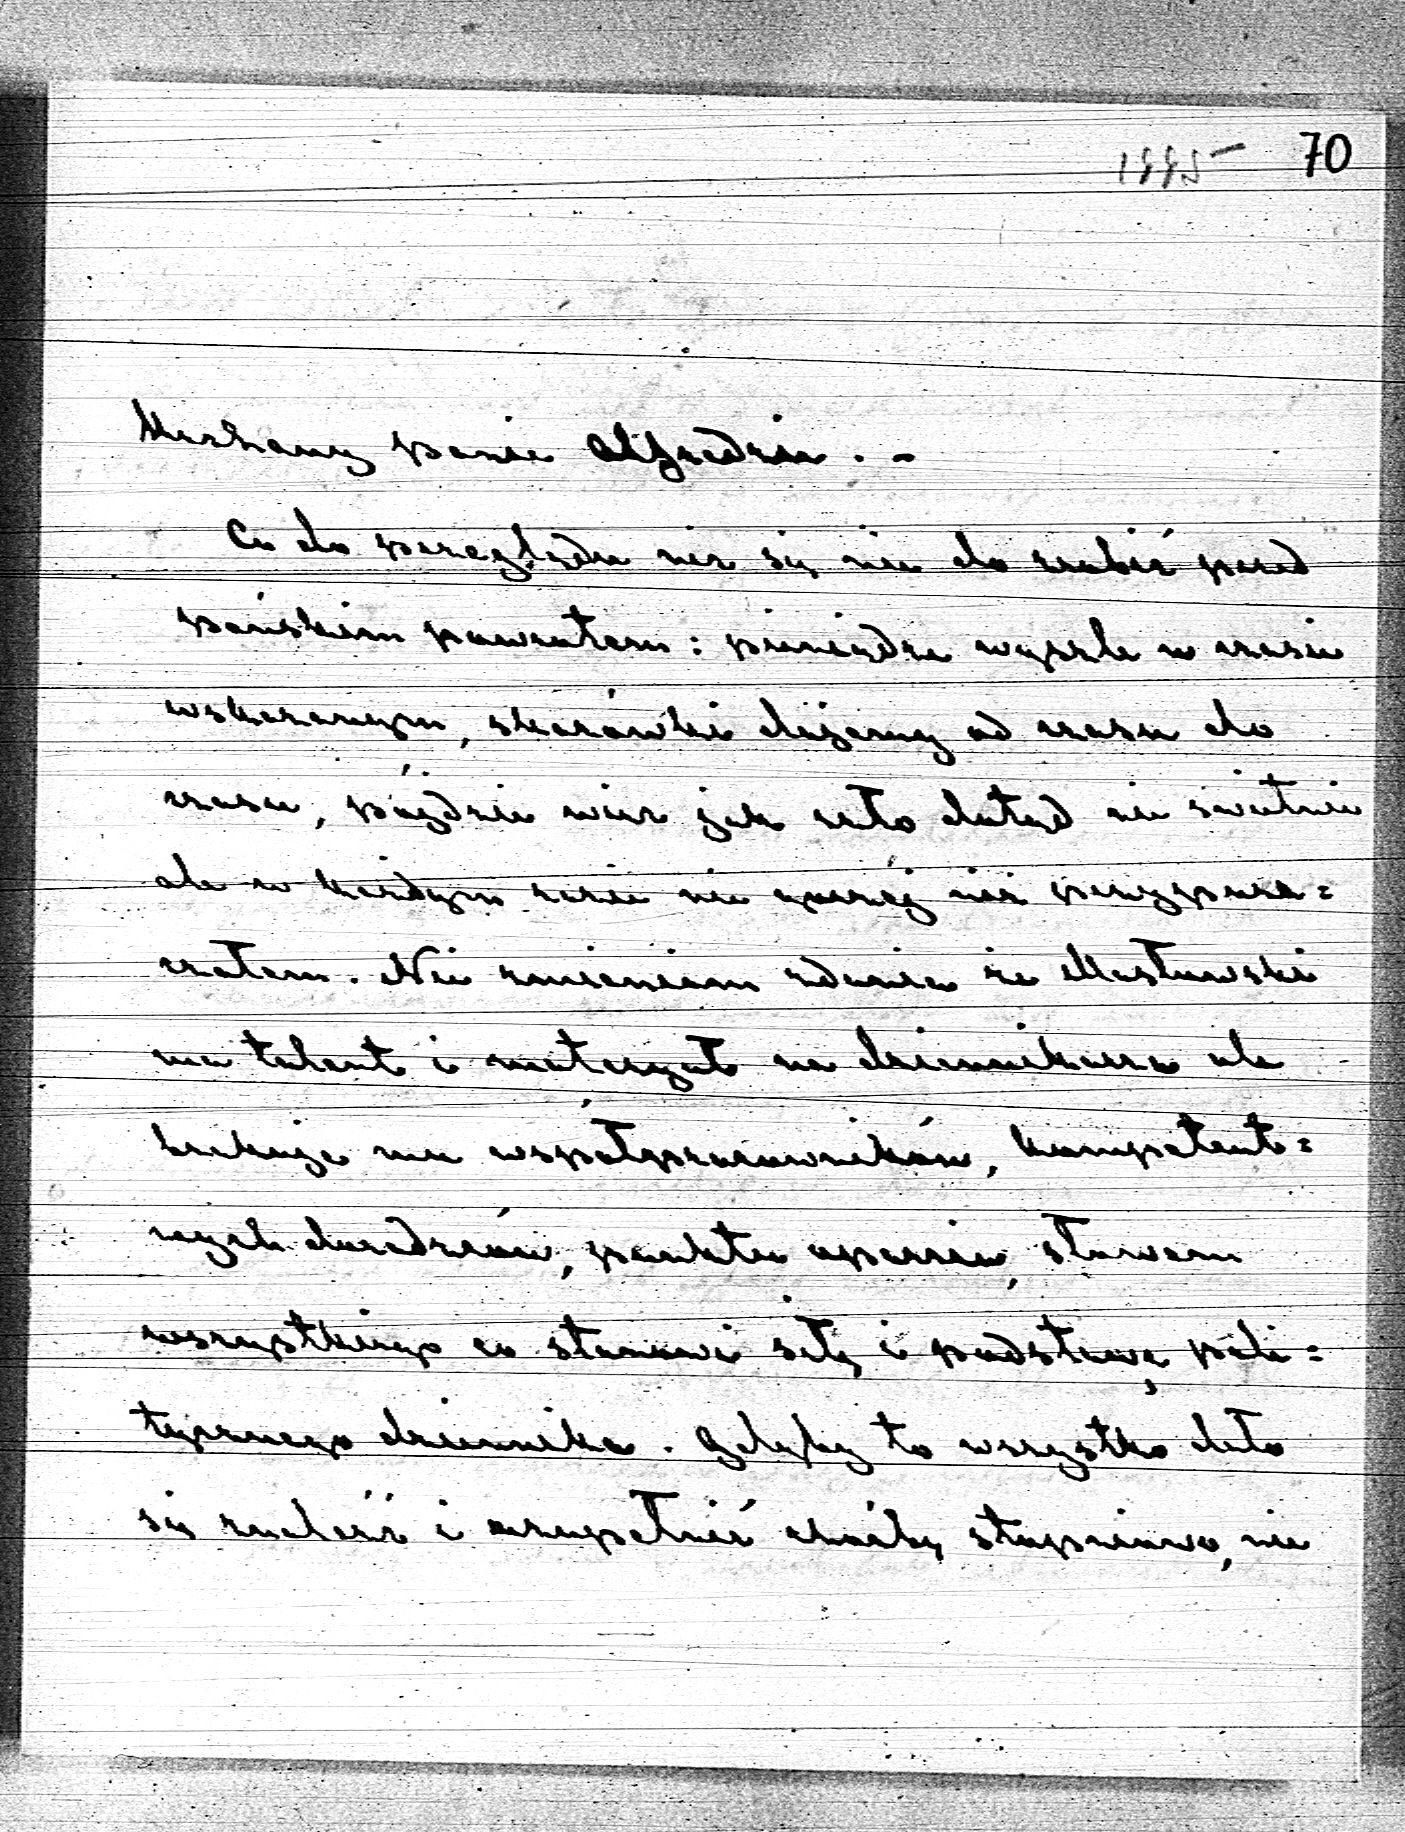 70
Kochany panie Alfredzie . –
Co do przeglądu nic się nie da zrobić przed
pańskim powrotem: pieniądze wyszle w czasie
wskazanym, skazówki dajemy od czasu do
czasu, pójdzie więc jak szło dotąd nie świetnie
ale w każdym razie nie gorzéj niż przypusz=
czałem. Nie zmieniam zdania że Masłowski
ma talent i materyał na dziennikarza ale
brakuje mu współpracowników, kompetent=
nych doradzców, punktu oparcia, słowem
wszystkiego co stanowi siłę i podstawę poli=
tycznego dziennika. Gdyby to wszystko dało
się znaleść i uzupełnić choćby stopniowo, nie